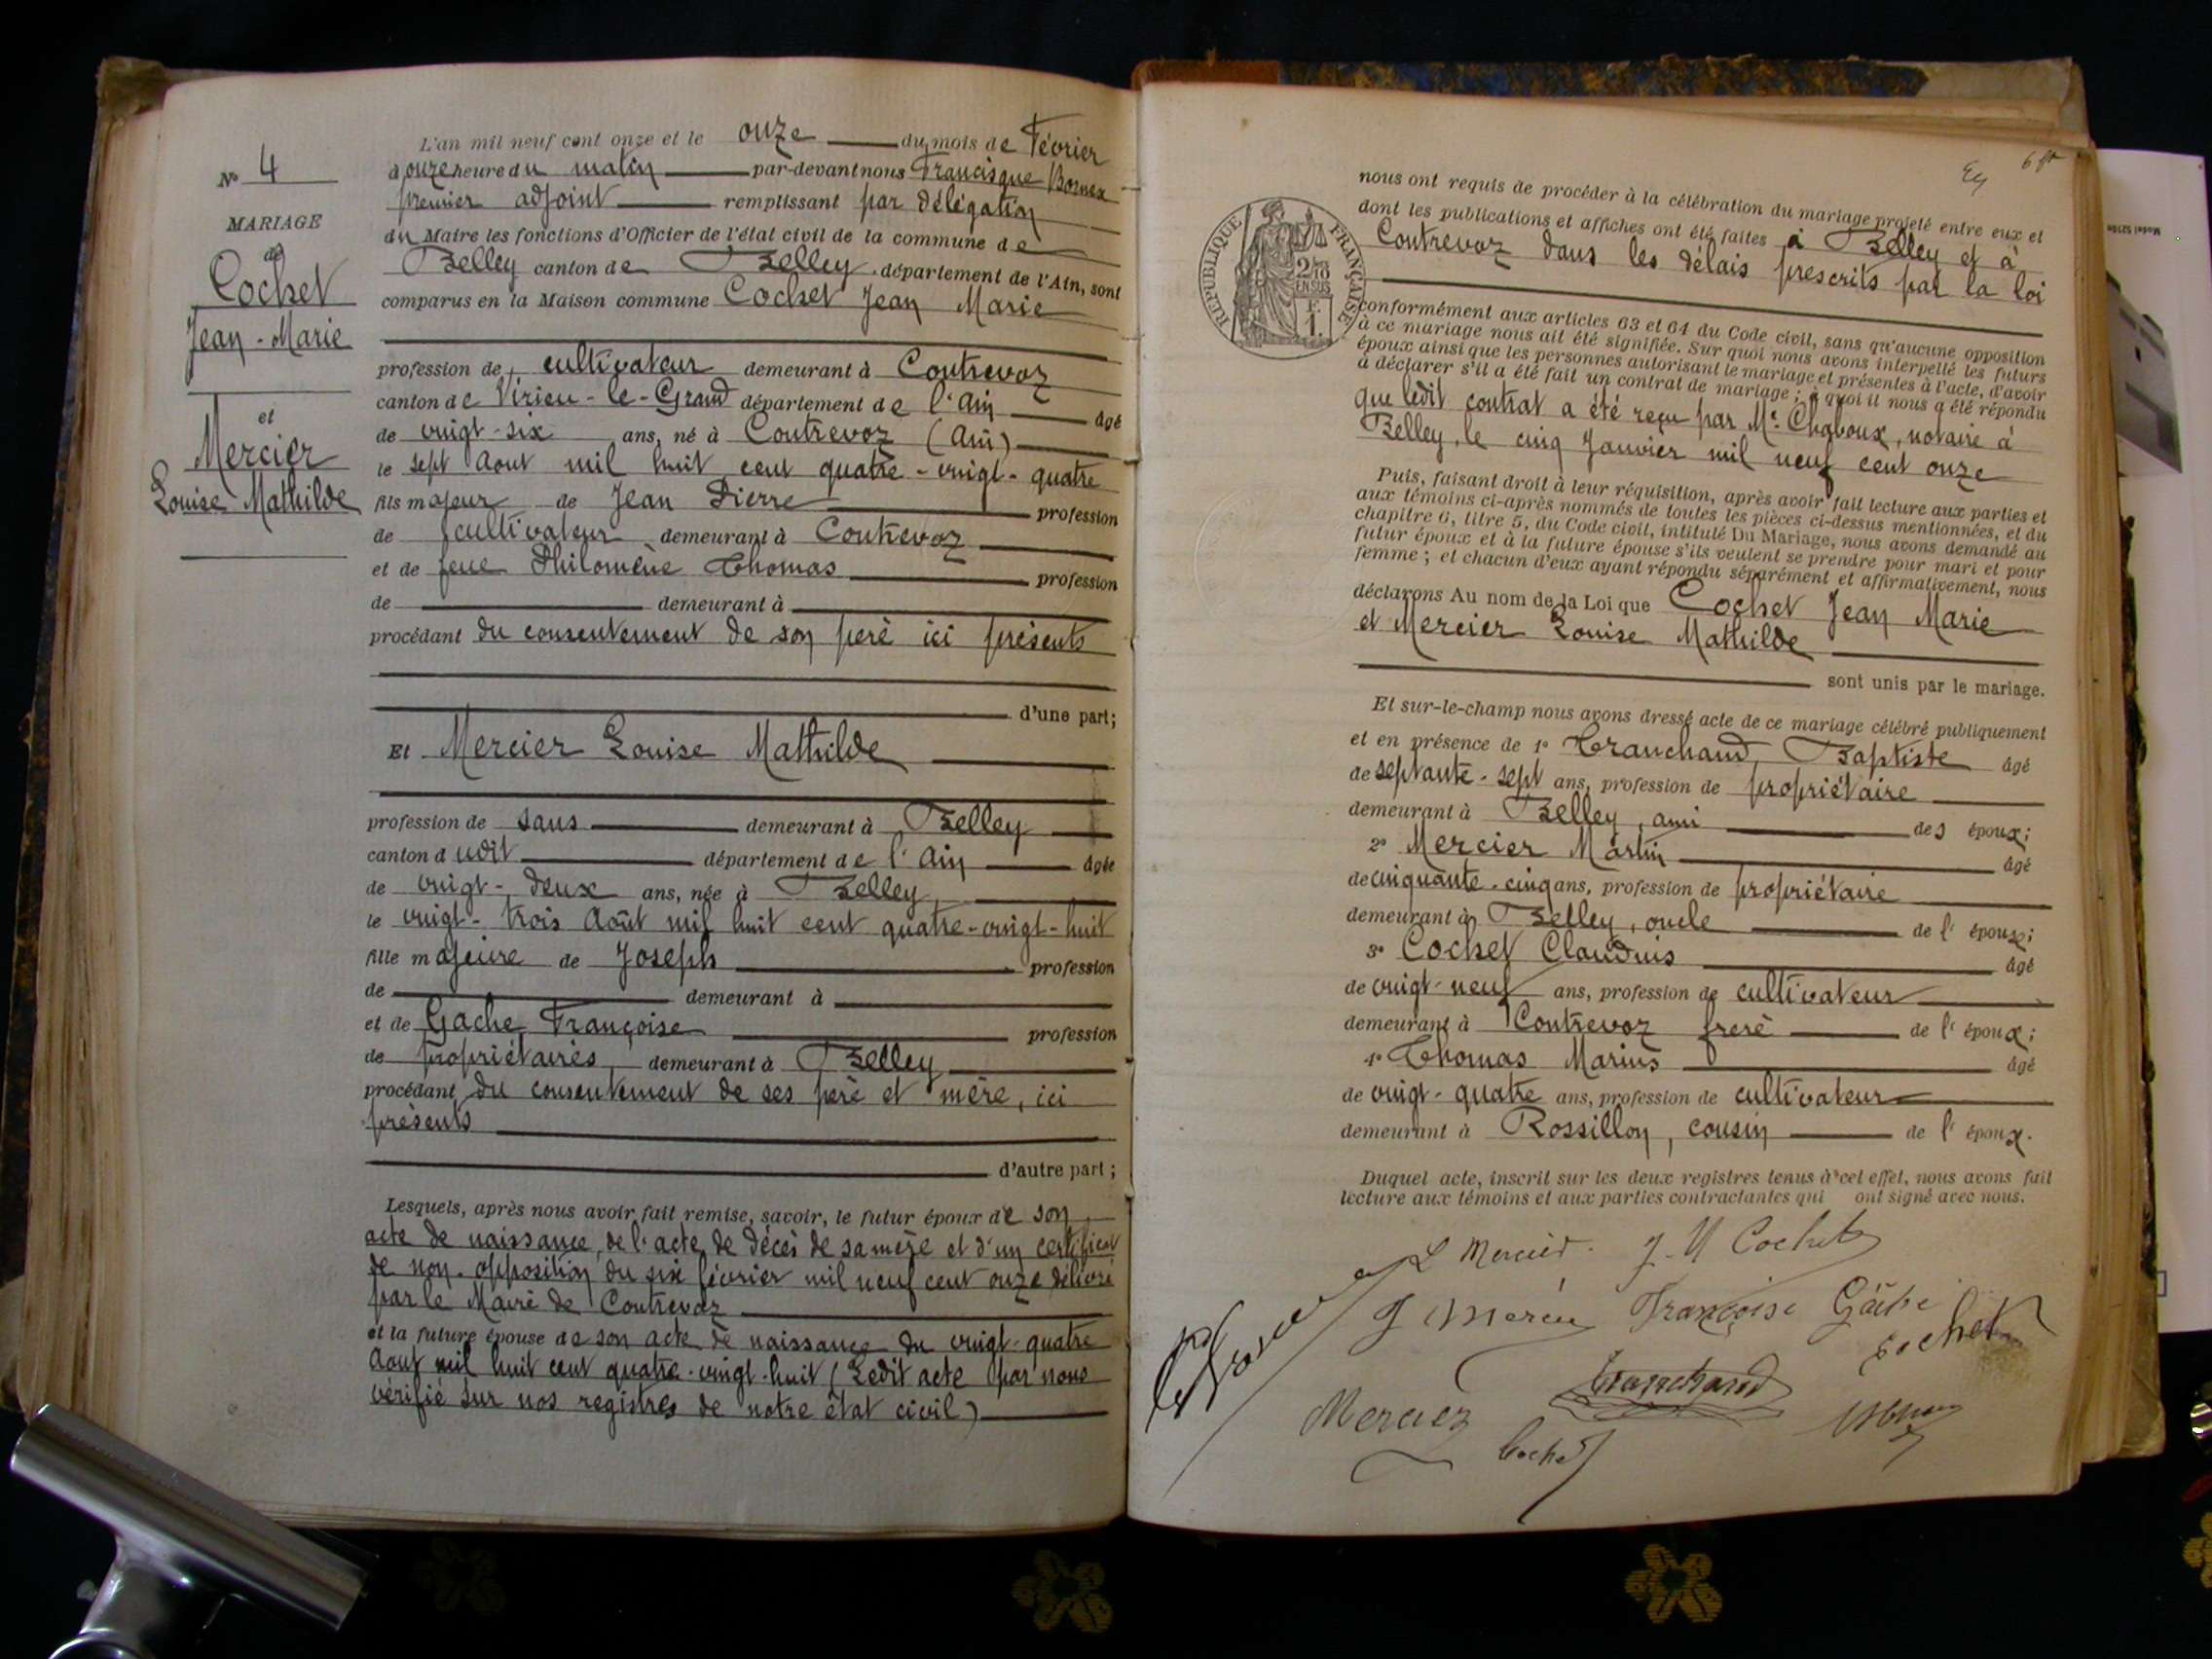 N° 4
MARIAGE
de
Cochet
Jean-Marie
et
Mercier
Louise Mathilde
L'an mil neuf cent onze et le onze du mois de Février
à onze heure du matin par-devant nous Francisque Bornex
premier adjoint remplissant par délégation
du Maire les fonctions d'Officier de l'état civil de la commune de
Belley canton de Belley, département de l'Ain, sont
comparus en la Maison commune Cochet Jean Marie
profession de cultivateur demeurant à Contrevoz
canton de Virieu-le-Grand département de l'Ain âgé
de vingt-six ans, né à Contrevoz (Ain)
le sept Aout mil huit cent quatre-vingt-quatre
fils majeur de Jean Pierre profession
de cultivateur demeurant à Contrevoz
et de feue Philomène Thomas profession
de demeurant à
procédant du consentement de son père ici présents
d'une part;
Et Mercier Louise Mathilde
profession de sans demeurant à Belley
canton dudit département de l'Ain âgée
de vingt-deux ans, née à Belley
le vingt-trois Août mil huit cent quatre-vingt-huit
fille majeure de Joseph profession
de demeurant à
et de Gache Françoise profession
de propriétaires demeurant à Belley
procédant du consentement de ses père et mère, ici
présents
d'autre part;
Lesquels, après nous avoir fait remise, savoir, le futur époux de son
acte de naissance, de l'acte de décès de sa mère et d'un certificat
de non-opposition du six février mil neuf cent onze délivré
par le Maire de Contrevoz
et la future épouse de son acte de naissance du vingt-quatre
Aout mil huit cent quatre-vingt-huit (Ledit acte par nous
vérifié sur nos registres de notre état civil)
REPUBLIQUE FRANÇAISE
2/10
EN SUS
F.
1.
nous ont requis de procéder à la célébration du mariage projeté entre eux et
dont les publications et affiches ont été faites à Belley et à
Contrevoz dans les délais prescrits par la loi
conformément aux articles 63 et 64 du Code civil, sans qu'aucune opposition
à ce mariage nous ait été signifiée. Sur quoi nous avons interpellé les futurs
époux ainsi que les personnes autorisant le mariage et présentes à l'acte, d'avoir
à déclarer s'il a été fait un contrat de mariage; à quoi il nous a été répondu
que ledit contrat a été reçu par Me Chaboux, notaire à
Belley, le cinq Janvier mil neuf cent onze
Puis, faisant droit à leur réquisition, après avoir fait lecture aux parties et
aux témoins ci-après nommés de toutes les pièces ci-dessus mentionnées, et du
chapitre 6, titre 5, du Code civil, intitulé Du Mariage, nous avons demandé au
futur époux et à la future épouse s'ils veulent se prendre pour mari et pour
femme; et chacun d'eux ayant répondu séparément et affirmativement, nous
déclarons Au nom de la Loi que Cochet Jean Marie
et Mercier Louise Mathilde
sont unis par le mariage.
Et sur-le-champ nous avons dressé acte de ce mariage célébré publiquement
et en présence de 1° Tranchand, Baptiste âgé
de septante-sept ans, profession de propriétaire
demeurant à Belley, ami des époux;
2° Mercier Martin âgé
de cinquante-cinq ans, profession de propriétaire
demeurant à Belley, oncle de l'épouse;
3° Cochet Claudius âgé
de vingt-neuf ans, profession de cultivateur
demeurant à Contrevoz frère de l'époux;
4° Thomas Marius âgé
de vingt-quatre ans, profession de cultivateur
demeurant à Rossillon, cousin de l'époux.
Duquel acte, inscrit sur les deux registres tenus à cet effet, nous avons fait
lecture aux témoins et aux parties contractantes qui ont signé avec nous.
L Mercier. J. M Cochet
J Mercier Françoise Gache
Cochet
Tranchand
Mercier
Cochet